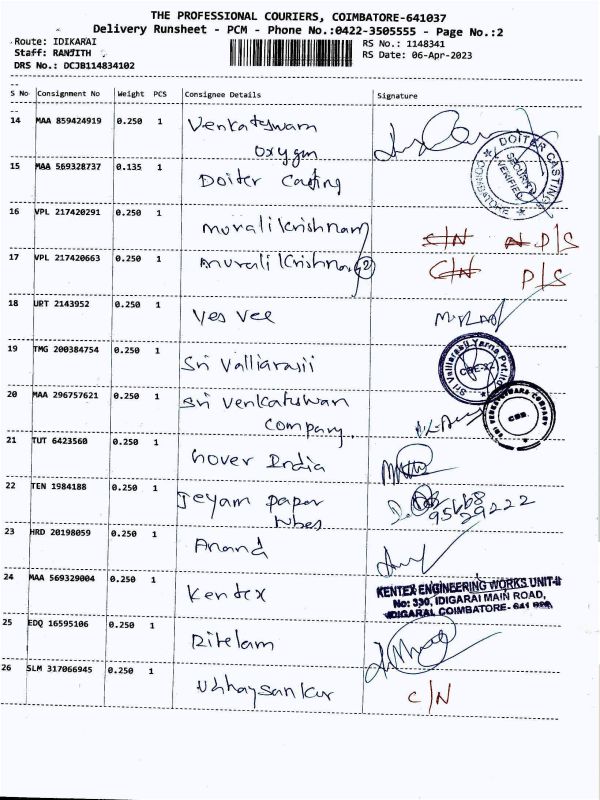 THE PROFESSIONAL COURIERS, COIMBATORE-641037
Delivery Runsheet - PCM - Phone No.:0422-3505555 - Page No.:2
Route: IDIKARAI
RS No.: 1148341
Staff: RANJITH
RS Date: 06-Apr-2023
DRS No.: DCJB114834102
S No Consignment No Weight PCS Consignee Details Signature
14 MAA 859424919 0.250 1 Venkateswara
Oxygen
15 MAA 569328737 0.135 1 Doiter Casting
DOITER CASTING
SECURITY
VERIFIED
COIMBATORE
16 VPL 217420291 0.250 1 Murali Krishnan
C/N D/S
17 VPL 217420663 0.250 1 Murali Krishna (2)
C/N D/S
18 URT 2143952 0.250 1 Yes Vee
19 TMG 200384754 0.250 1 Sri Valliarasii
20 MAA 296757621 0.250 1 Sri Venkateswara
Company.
SRI VENKATESWARA COMPANY
CBE.
21 TUT 6423560 0.250 1 Hover India
22 TEN 1984188 0.250 1 Jeyam paper
tubes
95668
29222
23 HRD 20198059 0.250 1 Anand
24 MAA 569329004 0.250 1 Kentex
KENTEX ENGINEERING WORKS UNIT-II
No: 330, IDIGARAI MAIN ROAD,
IDIGARAI, COIMBATORE- 641
25 EDQ 16595106 0.250 1 Ritelam
26 SLM 317066945 0.250 1 Ubhaysankur
C/N